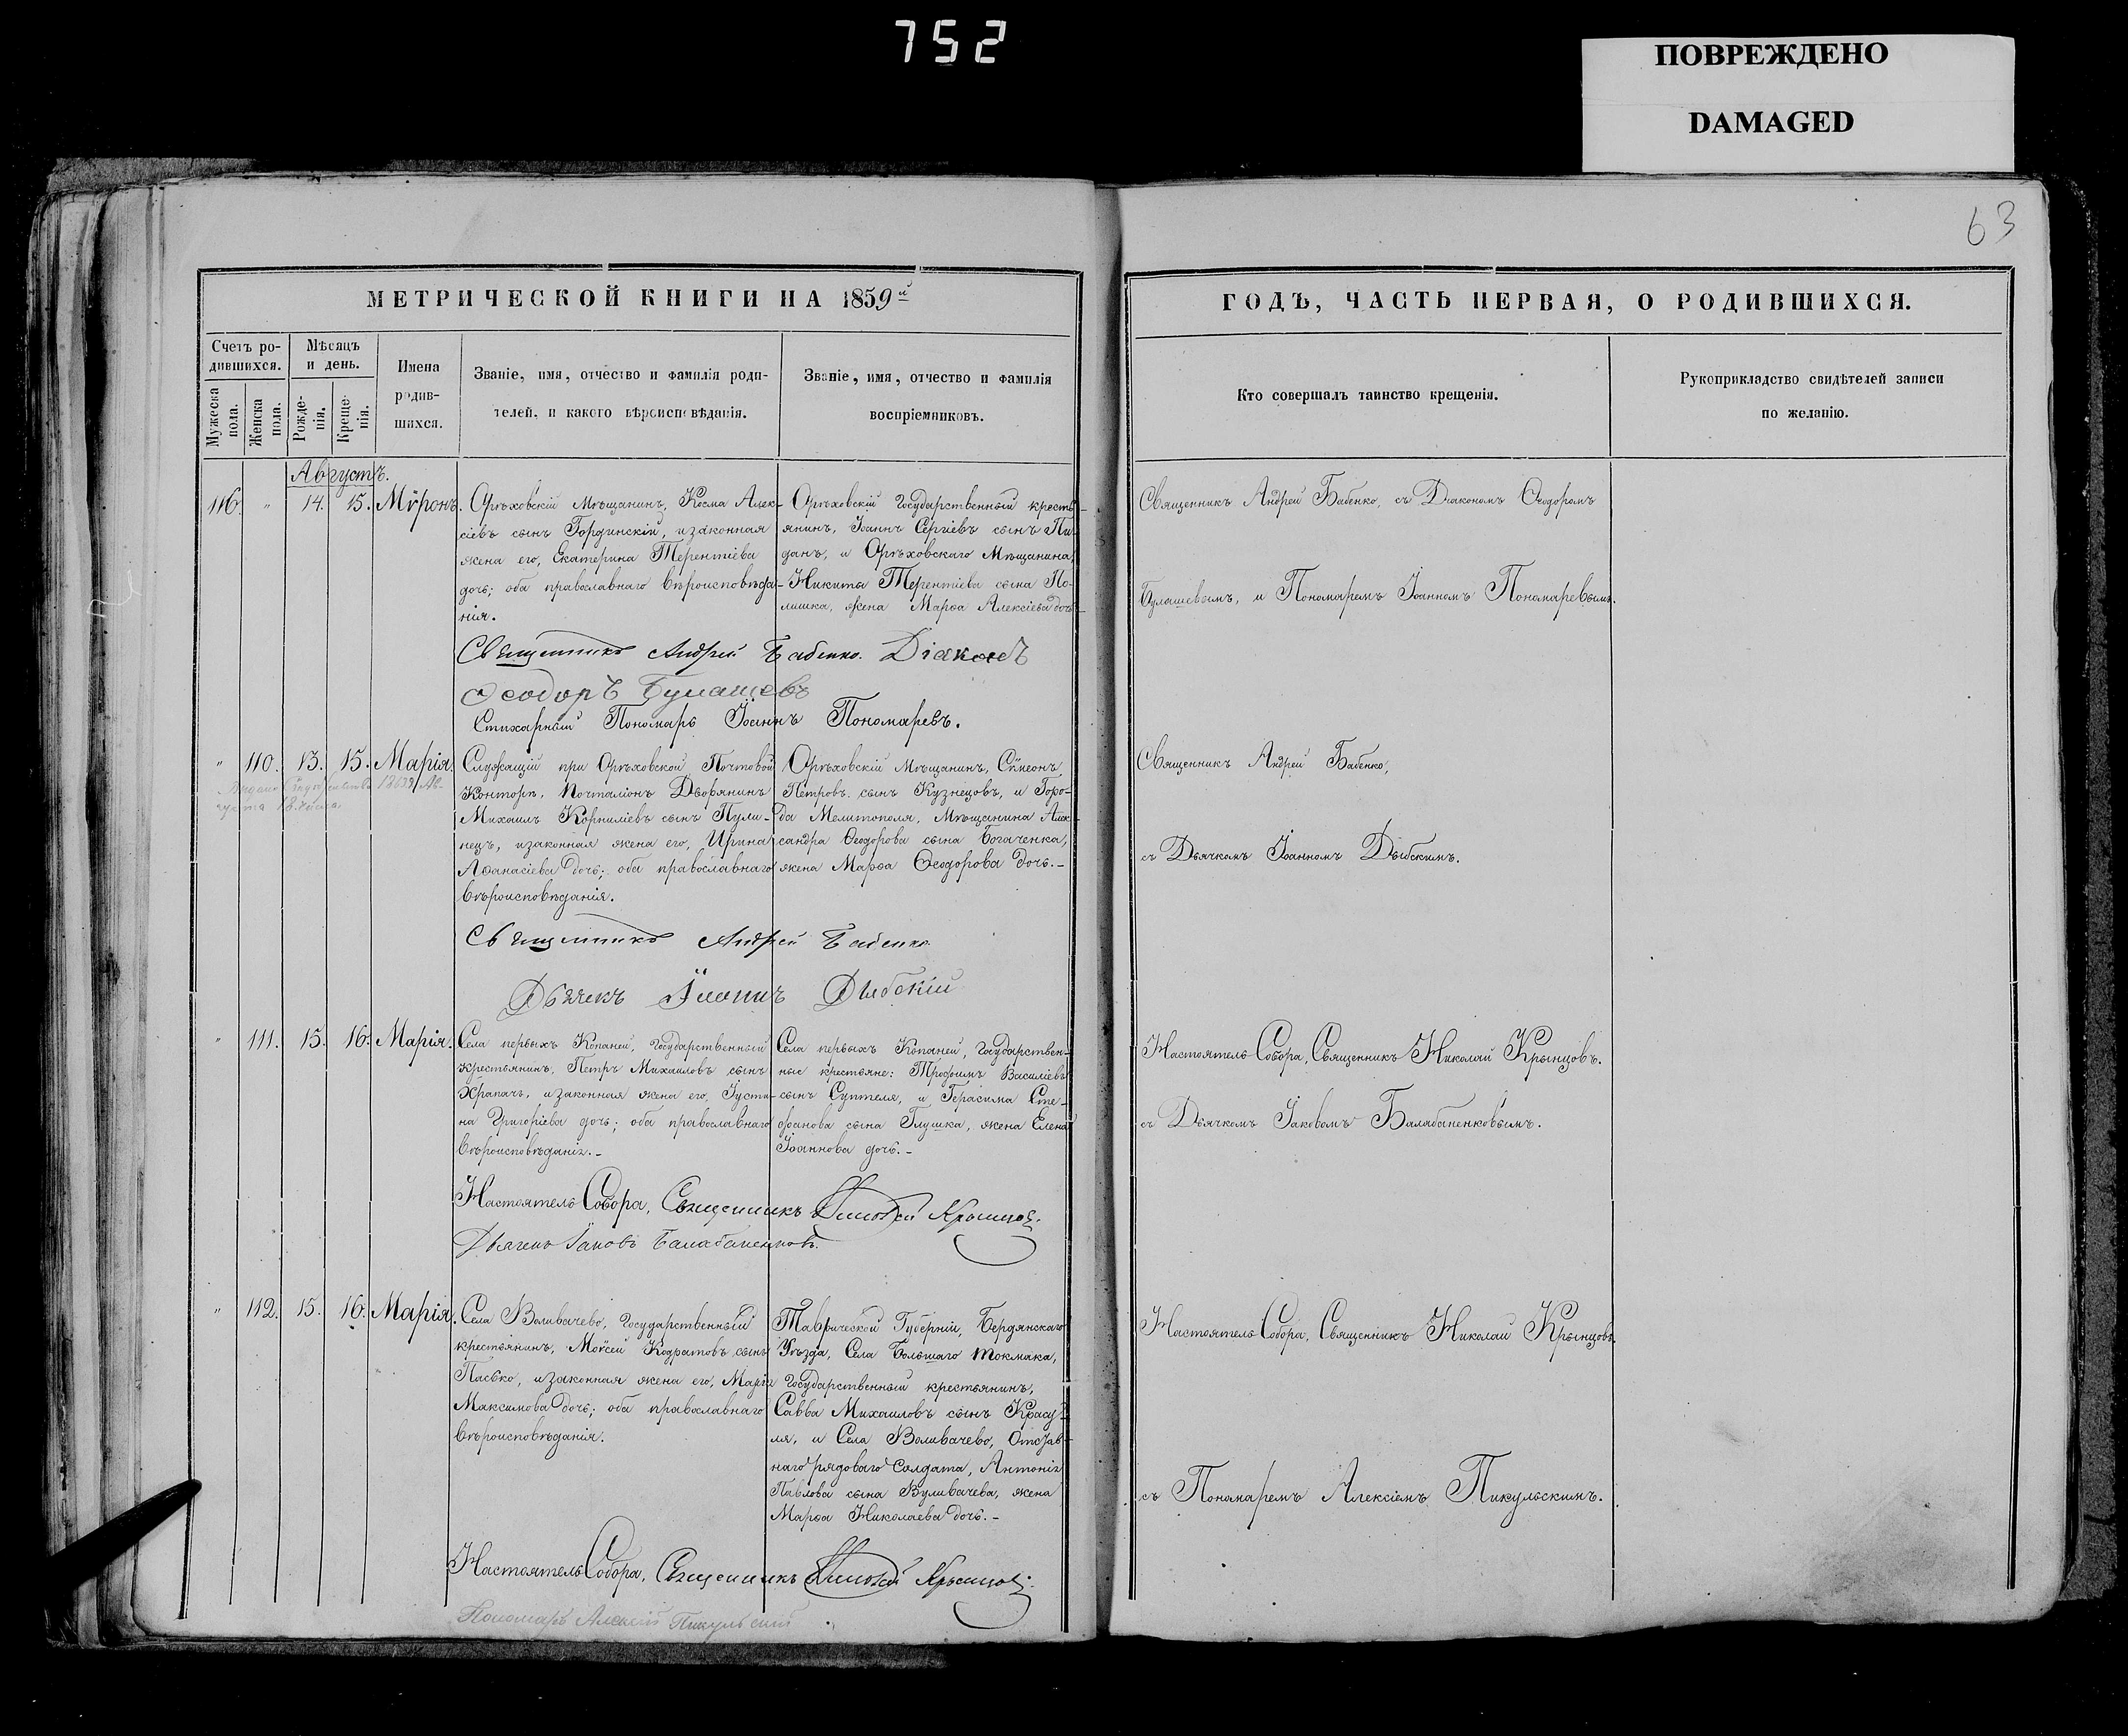 752
ПОВРЕЖДЕНО
DAMAGED
63
МЕТРИЧЕСКОЙ КНИГИ НА 1859й
Счетъ ро-
дившихся.
Мужеска пола.
Женска пола.
Мѣсяцъ
и день.
Рожде-
нія.
Креще-
нія.
Имена
родив-
шихся.
Званіе, имя, отчество и фамилія роди-
телей, и какого вѣроисповѣданія.
Званіе, имя, отчество и фамилія
воспріемниковъ.
Августъ.
116. " 14. 15. Мѵронъ.
Орѣховскій Мѣщанинъ, Косма Алек-
сіевъ сынъ Гординскій, изаконная
жена его, Екатерина Терентіева
дочь; оба православнаго вѣроисповѣда-
нія.
Орѣховскій Государственный кресть-
янинъ, Іоаннъ Сергіевъ сынъ Пи-
данъ, и Орѣховскаго Мѣщанина,
Никиты Терентіева сына По-
лишка, жена Марѳа Алексіева дочь
Священникъ Андрей Бабенко. Діаконъ
Ѳеодоръ Булашевъ
Стихарный Пономарь Іоаннъ Пономаревъ.
" 110. 13. 15. Марія.
Служащій при Орѣховской Почтовой
Конторѣ, Почталіонъ Дворянинъ
Михаилъ Корниліевъ сынъ Пули-
нецъ, изаконная жена его, Ирина
Аѳанасіева дочь; оба православнаго
вѣроисповѣданія.
Орѣховскій Мѣщанинъ, Сѵмеонъ
Петровъ сынъ Кузнецовъ, и Горо-
да Мелитополя, Мѣщанина Алек-
сандра Ѳеодорова сына Богаченка,
жена Марѳа Ѳеодорова дочь.-
Священникъ Андрей Бабенко
Дьячекъ Іоаннъ Дыбскій
" 111. 15. 16. Марія.
Села первыхъ Копаней, Государственный
крестьянинъ, Петръ Михаиловъ сынъ
Храпачъ, изаконная жена его, Іусти-
на Григоріева дочь; оба православнаго
вѣроисповѣданія.-
Села первыхъ Копаней, Государствен-
ные крестьяне: Трофимъ Василіевъ
сынъ Суптеля, и Герасима Сте-
фанова сына Глушка, жена Елена
Іоаннова дочь.-
Настоятель Собора, Священникъ Николай Крынцовъ.
Дьячекъ Іаковъ Балабаненковъ.
" 112. 15. 16. Марія.
Села Воливачево, Государственный
крестьянинъ, Моѵсей Кодратовъ сынъ
Пасько, изаконная жена его, Марія
Максимова дочь; оба православнаго
вѣроисповѣданія.
Таврической Губерніи, Бердянскаго
Уѣзда, Села Большаго Токмака,
Государственный крестьянинъ,
Савва Михаиловъ сынъ Красу-
ля, и Села Воливачево, Отстав-
наго рядоваго Солдата, Антонія
Павлова сына Вуливачева, жена
Марѳа Николаева дочь.-
Настоятель Собора, Священникъ Николай Крынцовъ.
Пономарь Алексій Пикульскій
ГОДЪ, ЧАСТЬ ПЕРВАЯ, О РОДИВШИХСЯ.
Кто совершалъ таинство крещенія.
Рукоприкладство свидѣтелей записи
по желанію.
Священникъ Андрей Бабенко, съ Діакономъ Ѳеодоромъ
Булашевымъ, и Пономаремъ Іоанномъ Пономаревымъ.
Священникъ Андрей Бабенко,
съ Дьячкомъ Іоанномъ Дыбскимъ.
Настоятель Собора, Священникъ Николай Крынцовъ.
съ Дьячкомъ Іаковомъ Балабаненковымъ.
Настоятель Собора, Священникъ Николай Крынцовъ
съ Пономаремъ Алексіемъ Пикульскимъ.